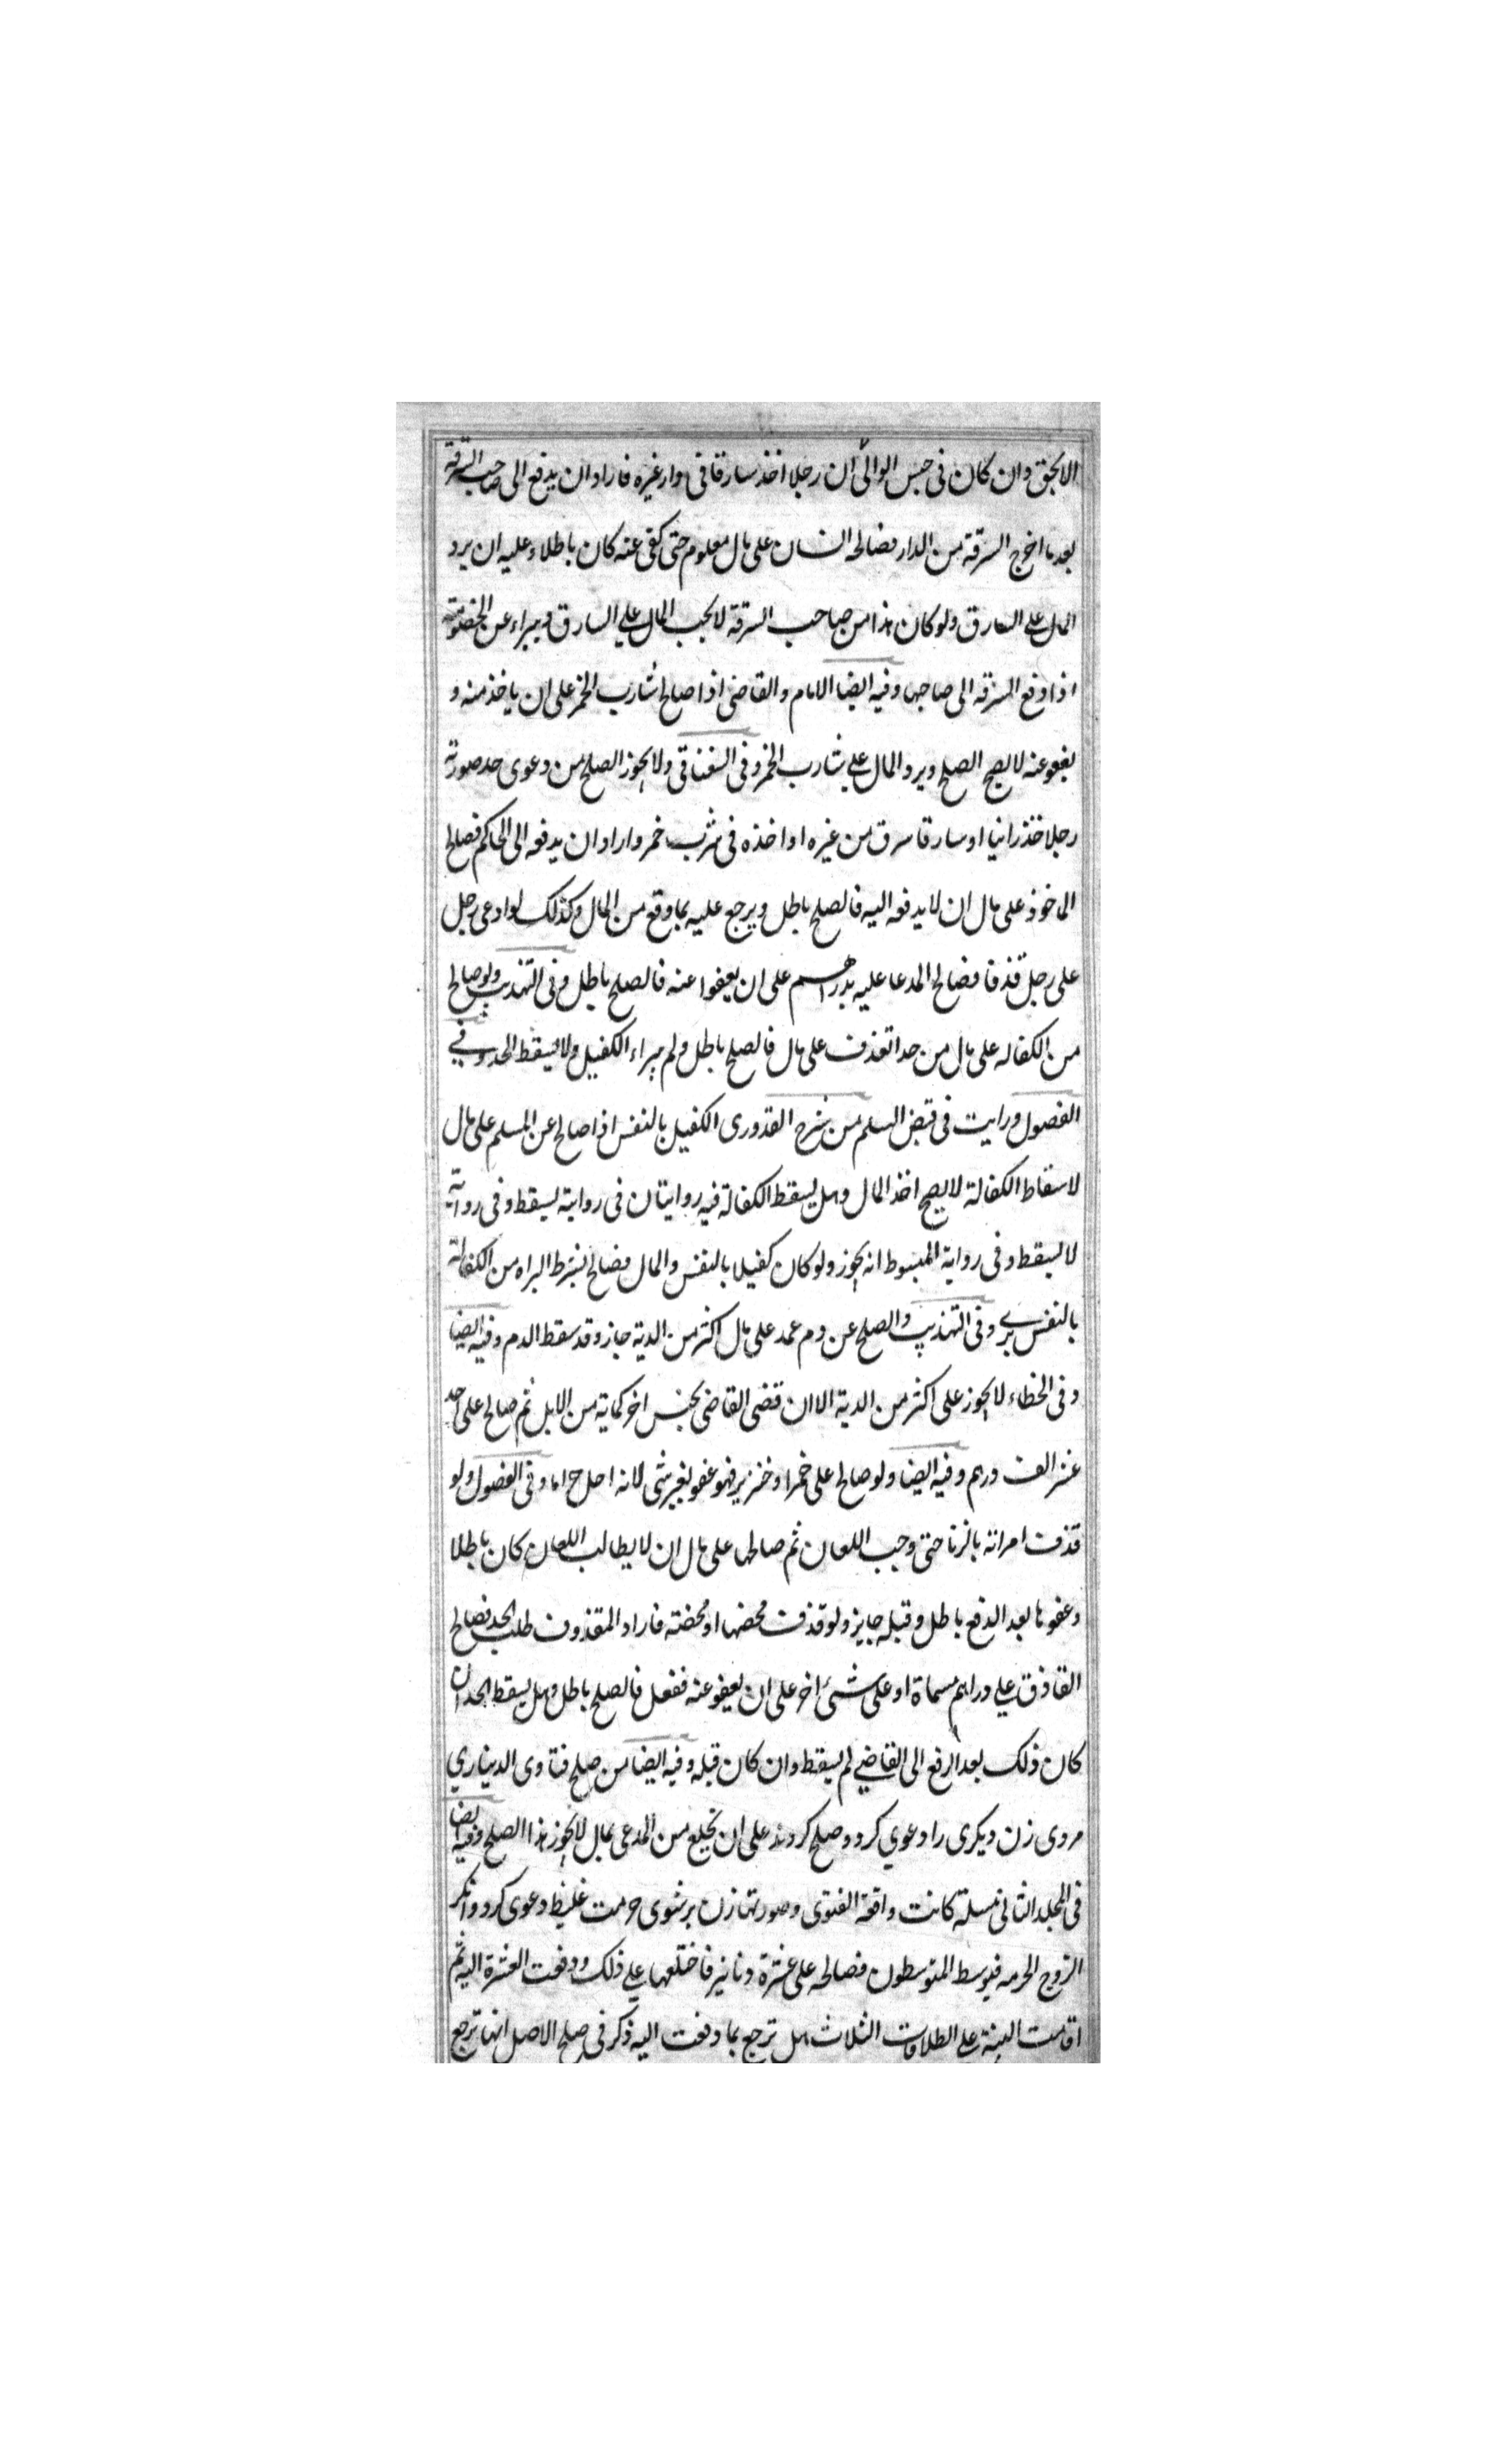 الا بحق وان كان فى حبس الوالى ان رجلا اخذ سارقا فى دار غيره فاراد ان يدفع الى صاحب السرقة
بعد ما اخرج السرقة من الدار فصالحه انسان على مال معلوم حتى كفى عنه كان باطلا وعليه ان يرد
المال على السارق ولو كان هذا من صاحب السرقة لا يجب المال على السارق ويبراء عن الخصومة
اذا دفع السرقة الى صاحبها وفيه ايضا الامام والقاضى اذا صالح شارب الخمر على ان ياخذ منه و
يعفو عنه لا يصح الصلح ويرد المال على شارب الخمر وفى السغناقى ولا يجوز الصلح من دعوى حد صورته
رجل اخذ زانيا او سارقا سرق من غيره او اخذه فى شرب خمر واراد ان يدفعه الى الحاكم فصالح
الماخوذ على مال ان لا يدفعه اليه فالصلح باطل ويرجع عليه بما دفع من المال وكذلك لو ادعى رجل
على رجل قذفا فصالح المدعا عليه بدراهم على ان يعفوا عنه فالصلح باطل وفى التهذيب ولو صالح
من الكفاله على مال من حد القذف على مال فالصلح باطل ولم يبراء الكفيل ولا يسقط الحد وفي
الفصول ورايت فى قبض السلم من شرح القدورى الكفيل بالنفس اذا صالح عن المسلم على مال
لاسقاط الكفالة لا يصح اخذ المال وهل يسقط الكفالة فيه روايتان فى رواية يسقط وفى رواية
لا يسقط وفى رواية المبسوط انه يجوز ولو كان كفيلا بالنفس والمال فصالح بشرط البراه من الكفالة
بالنفس برى وفى التهذيب والصلح عن دم عمد على مال اكثر من الدية جاز وقد سقط الدم وفيه ايضا
وفى الخطاء لا يجوز على اكثر من الدية الا ان قضى القاضى بجنس اخر كماية من الابل ثم صالح على احد
عشر الف درهم وفيه ايضا ولو صالح على خمر او خنزير فهو عفو بغير شى لانه اصلح اما وفى الفصول ولو
قذف امراته بالزنا حتى وجب اللعان ثم صالحها على مال ان لا يطالب اللعان كان باطلا
وعفوها بعد الدفع باطل وقبله جايز ولو قذف محصنا او محصنة فاراد المقذوف طلب الحد فصالح
القاذف على دراهم مسماة او على شئ اخر على ان يعفو عنه ففعل فالصلح باطل وهل يسقط الحد ان
كان ذلك بعد الرفع الى القاضي لم يسقط وان كان قبله وفيه ايضا من صلح فتاوى الديناري
مردى زن ديكرى را دعوي كرد وصلح كردند على ان يخلع من المدعى بمال لا يجوز هذا الصلح وفيه ايضا
فى المجلد الثانى مسلة كانت واقعة الفتوى وصورتها زن بر شوى حرمت غليظ دعوى كرد وانكر
الزوج الحرمه فتوسط المتوسطون فصالحه على عشرة دنانير فاختلعها على ذلك ودفعت العشرة اليه ثم
اقامت البينة على الطلاقات الثلاث هل ترجع بما دفعت اليه ذكر فى صلح الاصل انها ترجع